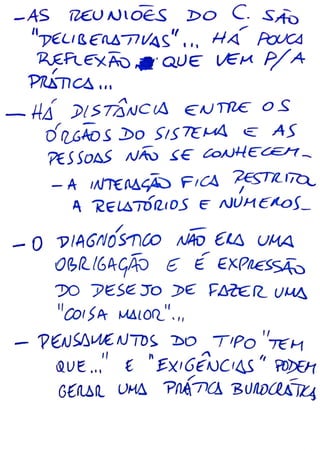 - AS REUNIÕES DO C. SÃO
"DELIBERATIVAS"... HÁ POUCA
REFLEXÃO QUE VEM P/A
PRÁTICA...
- HÁ DISTÂNCIA ENTRE OS
ÓRGÃOS DO SISTEMA E AS
PESSOAS NÃO SE CONHECEM-
- A INTERAÇÃO FICA RESTRITA
A RELATÓRIOS E NÚMEROS-
- O DIAGNÓSTICO NÃO ERA UMA
OBRIGAÇÃO E É EXPRESSÃO
DO DESEJO DE FAZER UMA
"COISA MAIOR"...
- PENSAMENTOS DO TIPO "TEM
QUE..." E "EXIGÊNCIAS" PODEM
GERAR UMA PRÁTICA BUROCRÁTICA